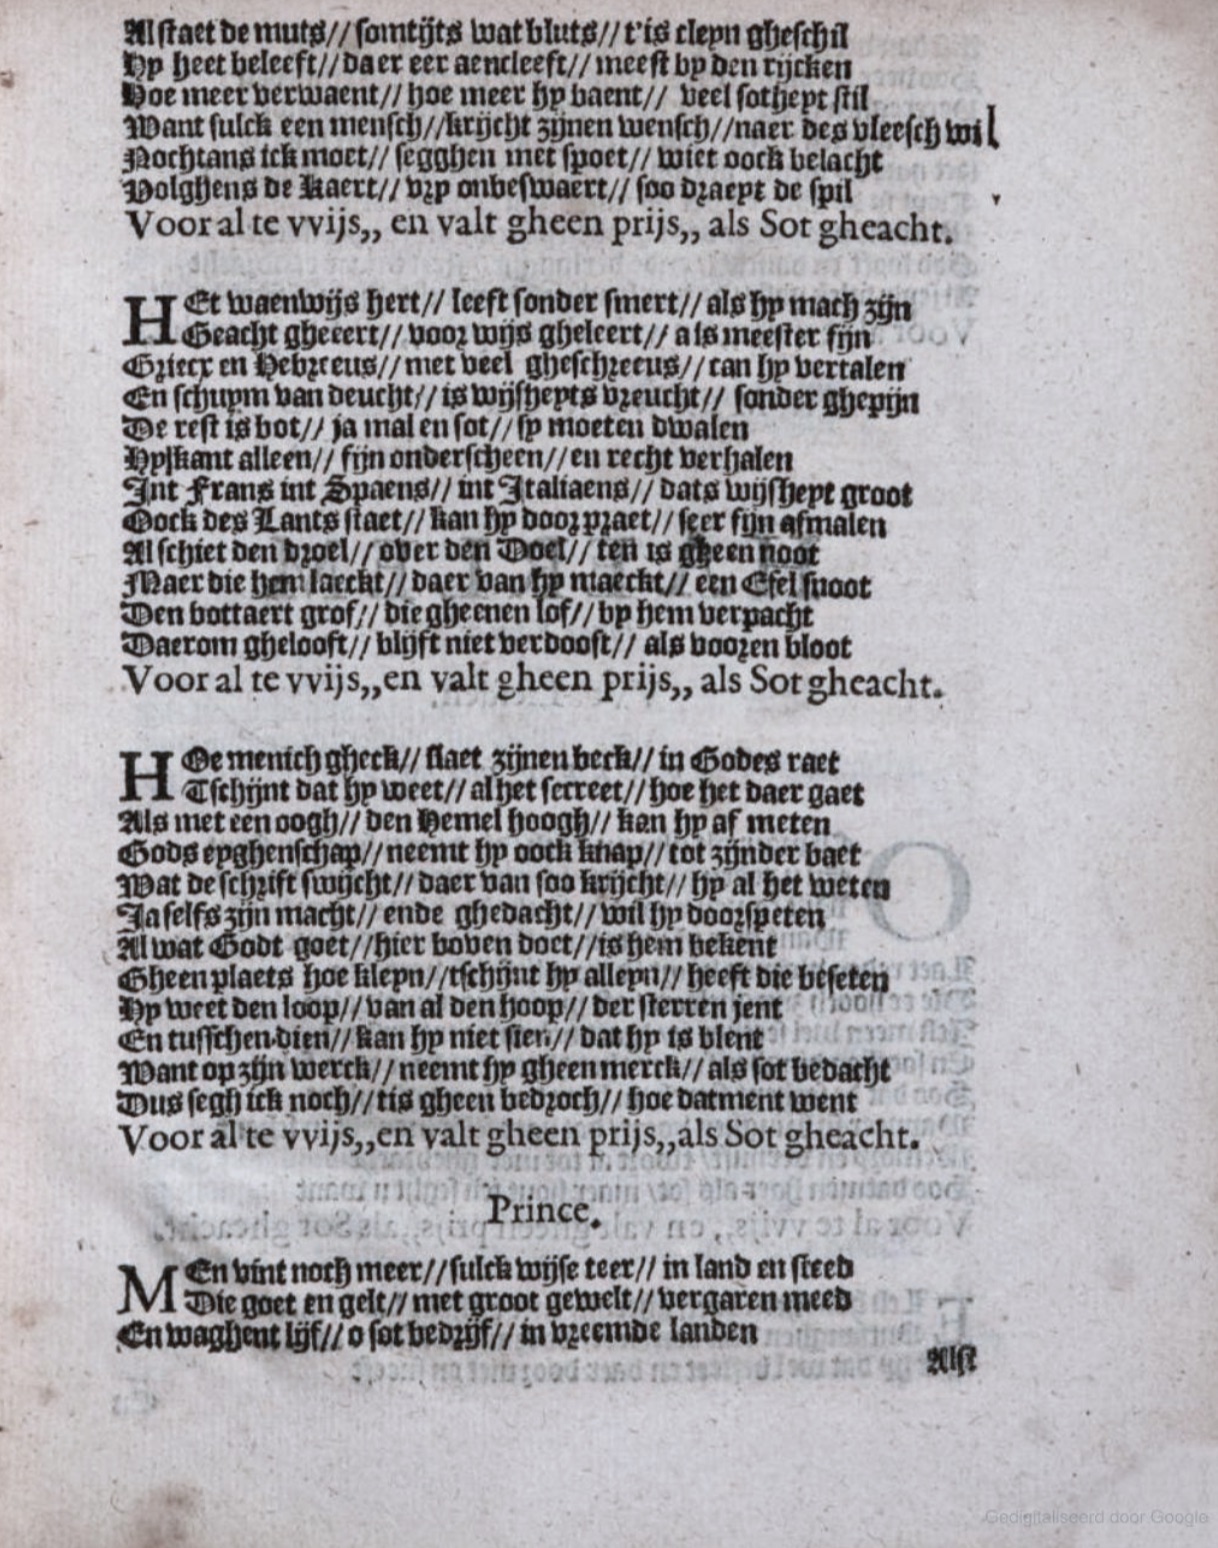 Al staet de muts// somtijts wat bluts// t'is cleyn gheschil
Hy heet beleeft// daer eer aencleeft// meest by den rijcken
Hoe meer verwaent// hoe meer hy baent// veel sotheyt stil
Want sulck een mensch//krijcht zijnen wensch//naer des vleesch wil
Nochtans ick moet// segghen met spoet// wiet oock belacht
Volghens de Kaert// vry onbeswaert// soo draeyt de spil
Voor al te vvijs,, en valt gheen prijs,, als Sot gheacht.
HEt waenwijs hert// leeft sonder smert// als hy mach zijn
Geacht gheeert// voor wijs gheleert// als meester fijn
Griecx en Hebreeus// met veel gheschreeus// can hy vertalen
En schuym van deucht// is wijsheyts vreucht// sonder ghepijn
De rest is bot// ja mal en sot// sy moeten dwalen
Hy kant alleen// fijn onderscheen// en recht verhalen
Int Frans int Spaens// int Italiaens// dats wijsheyt groot
Oock des Lants staet// kan hy door praet// seer fijn afmalen
Al schiet den droel// over den Doel// ten is gheen noot
Maer die hem laeckt// daer van hy maeckt// een Esel snoot
Den bottaert grof// die gheenen lof// by hem verpacht
Daerom ghelooft// blijft niet verdooft// als vooren bloot
Voor al te vvijs,,en valt gheen prijs,, als Sot gheacht.
HOe menich gheck// slaet zijnen beck// in Godes raet
Tschijnt dat hy weet// al het secreet// hoe het daer gaet
Als met een oogh// den Hemel hoogh// kan hy af meten
Gods eyghenschap// neemt hy oock knap// tot zijnder baet
Wat de schrift swijcht// daer van soo krijcht// hy al het weten
Ja selfs zijn macht// ende ghedacht// wil hy doorspeten
Al wat Godt goet//hier boven doet//is hem bekent
Gheen plaets hoe kleyn//tschijnt hy alleyn// heeft die beseten
Hy weet den loop// van al den hoop// der sterren jent
En tusschen dien// kan hy niet sien// dat hy is blent
Want op zijn werck// neemt hy gheen merck// als sot bedacht
Dus segh ick noch// tis gheen bedroch// hoe datment went
Voor al te vvijs,,en valt gheen prijs,,als Sot gheacht.
Prince.
MEn vint noch meer//sulck wijse teer// in land en steed
Die goet en gelt// met groot gewelt// vergaren meed
En waghent lijf// o sot bedrijf// in vreemde landen
Alst
Gedigitaliseerd door Google